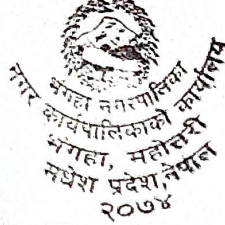 भंगाहा नगरपालिका
नगर कार्यपालिकाको कार्यालय
भंगाहा, महोत्तरी
मधेश प्रदेश, नेपाल
२०७४